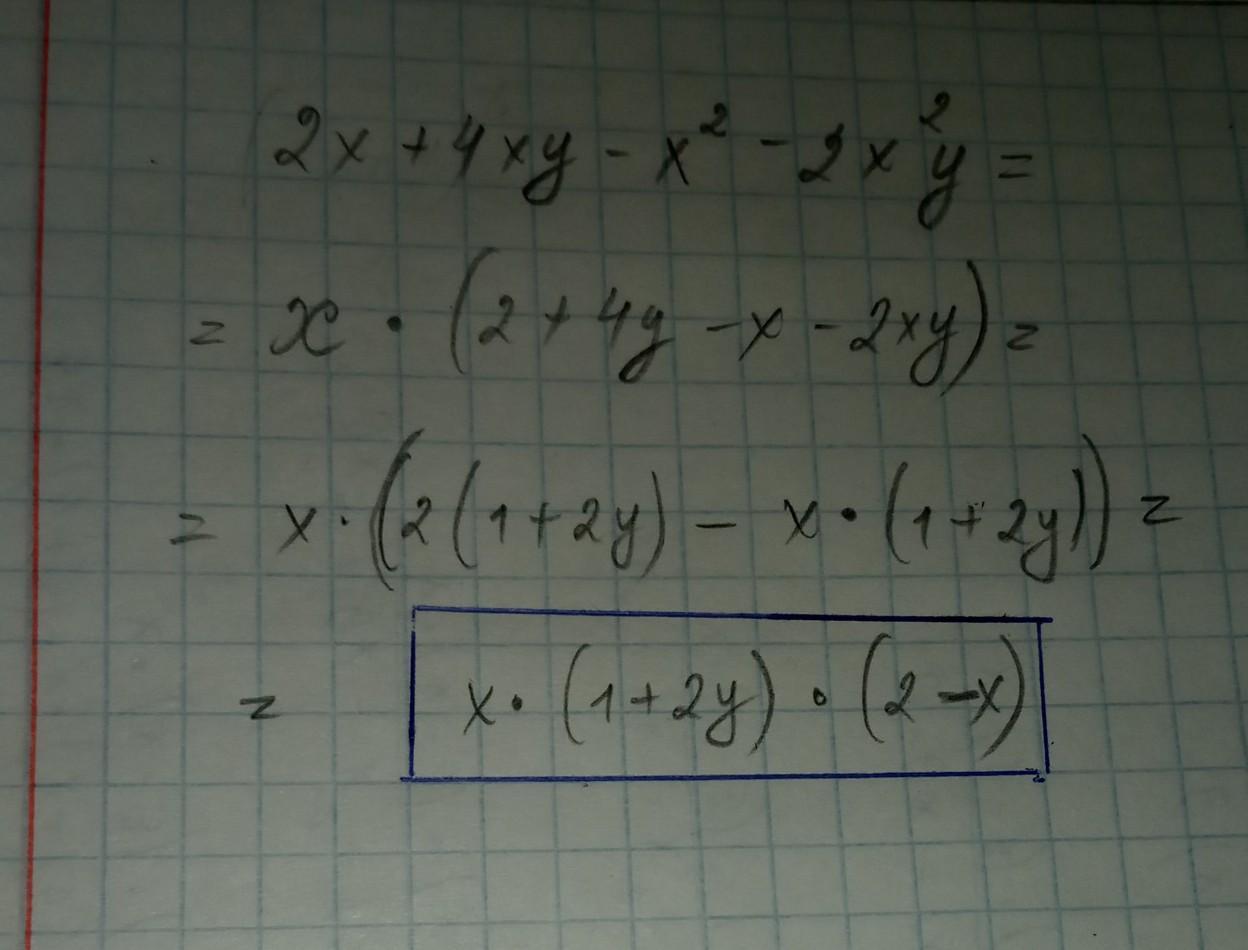 2x + 4xy - x² - 2x²y =
= x · (2 + 4y - x - 2xy) =
= x · (2(1 + 2y) - x · (1 + 2y)) =
= x · (1 + 2y) · (2 - x)